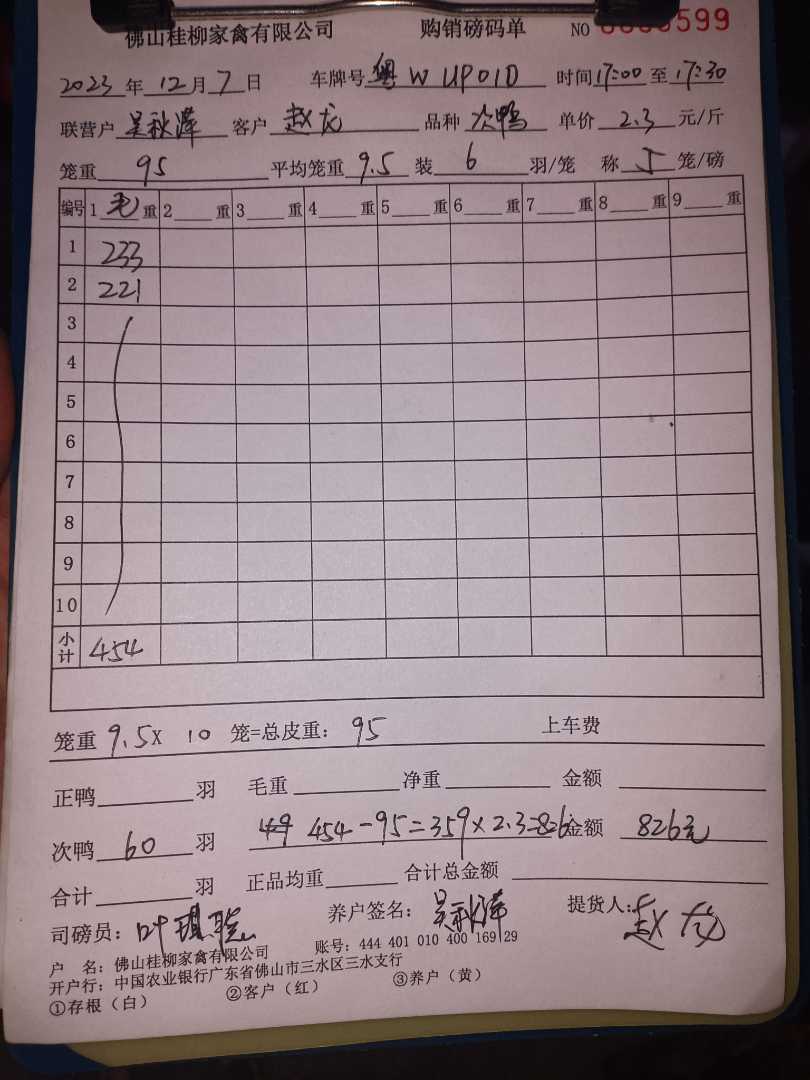 佛山桂柳家禽有限公司 购销磅码单 NO 599
2023年12月7日 车牌号粤W UP01D 时间17:00至17:30
联营户 吴秋萍 客户 赵龙 品种 次鸭 单价 2.3 元/斤
笼重 95 平均笼重 9.5 装 6 羽/笼 称 5 笼/磅
编号 1 毛 重 2 重 3 重 4 重 5 重 6 重 7 重 8 重 9 重
1 233
2 221
3
4
5
6
7
8
9
10
小计 454
笼重 9.5 X 10 笼=总皮重: 95 上车费
正鸭 羽 毛重 净重 金额
次鸭 60 羽 454-95=359×2.3=826 金额 826元
合计 羽 正品均重 合计总金额
司磅员: 叶 养户签名: 吴秋萍 提货人: 赵龙
户 名: 佛山桂柳家禽有限公司 账号: 444 401 010 400 169 29
开户行: 中国农业银行广东省佛山市三水区三水支行
①存根(白) ②客户(红) ③养户(黄)